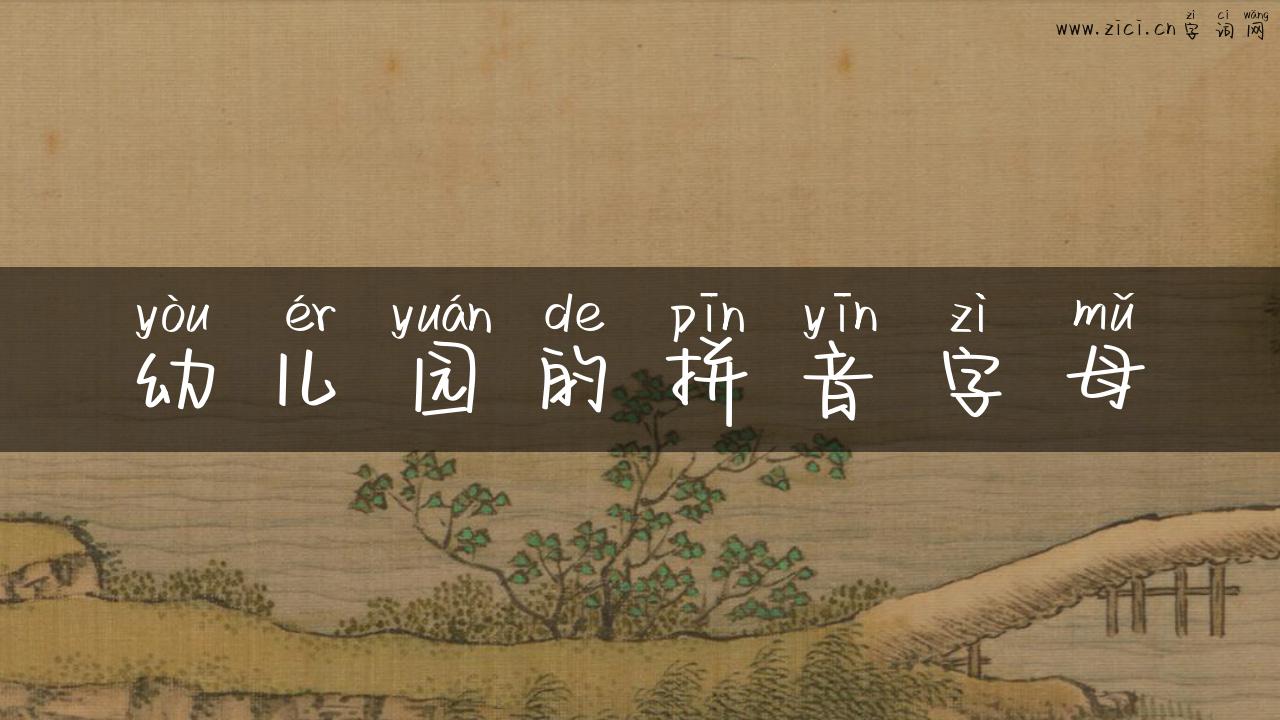 zì cí wǎng
www.zici.cn 字词网
yòu ér yuán de pīn yīn zì mǔ
幼儿园的拼音字母